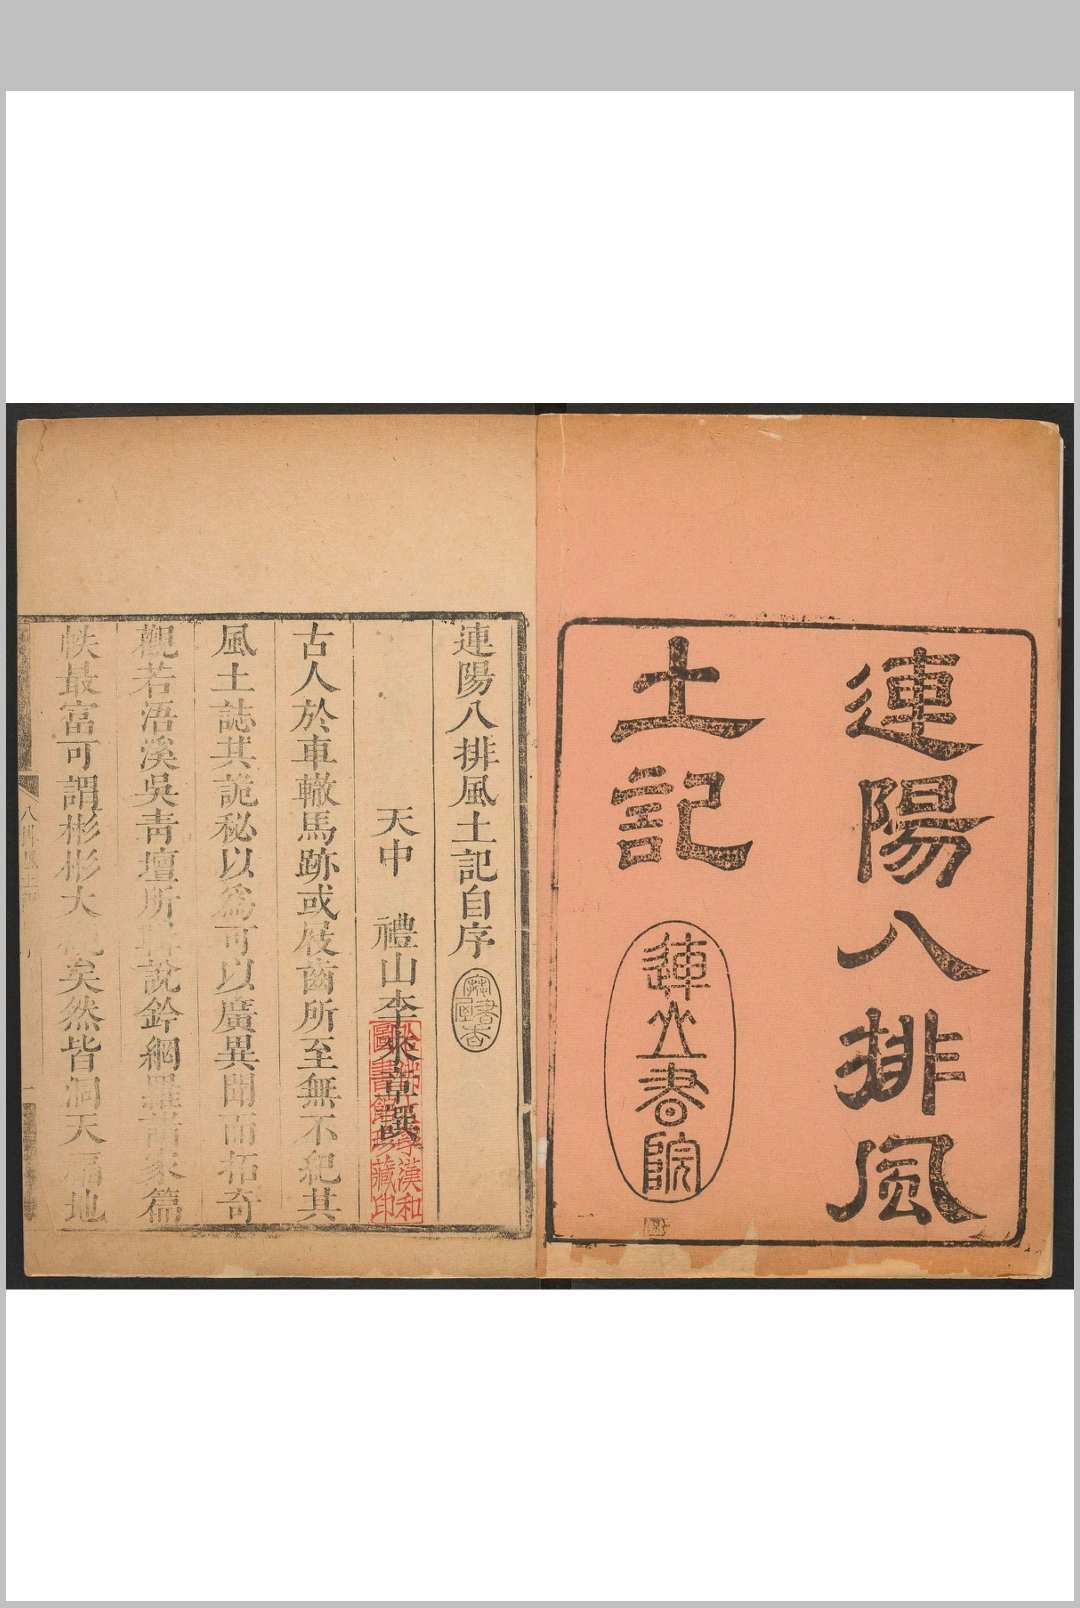 連陽八排風
土記
連山書院
連陽八排風土記自序
天中　禮山李來章譔
哈佛大學漢和
圖書館珍藏印
古人於車轍馬跡或屐齒所至無不紀其
風土誌其詭秘以爲可以廣異聞而拓奇
觀若浯溪吳青壇所 說鈴網羅 家篇
帙最富可謂彬彬大 矣然皆洞天福地